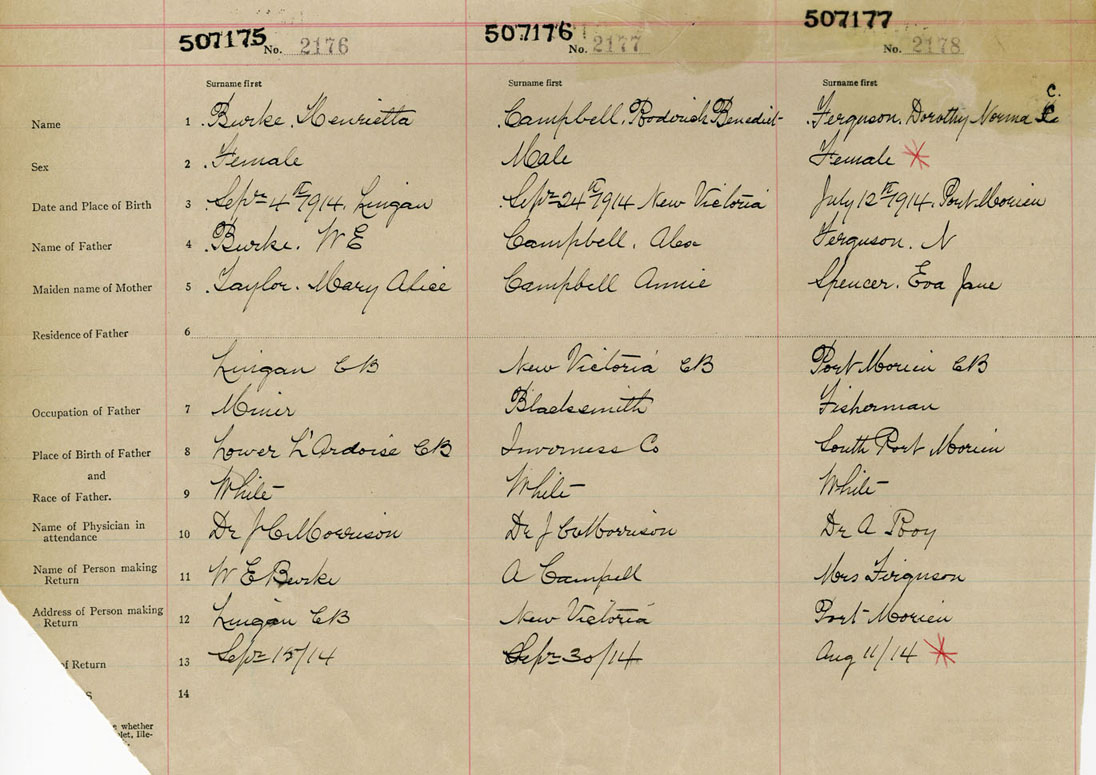 507175 507176 507177
No. 2176 No. 2177 No. 2178
Surname first Surname first Surname first
Name 1 Burke. Henrietta Campbell. Roderick Benedict Ferguson. Dorothy Norma C.
Sex 2 Female Male Female
Date and Place of Birth 3 Sepr 4th 1914. Lingan Sepr 24th 1914 New Victoria July 12th 1914. Port Morien
Name of Father 4 Burke. W E Campbell. Alex Ferguson. N
Maiden name of Mother 5 Taylor. Mary Alice Campbell Annie Spencer. Eva Jane
Residence of Father 6
Lingan CB New Victoria CB Port Morien CB
Occupation of Father 7 Miner Blacksmith Fisherman
Place of Birth of Father 8 Lower L'Ardoise CB Inverness Co South Port Morien
and
Race of Father. 9 White White White
Name of Physician in
attendance 10 Dr J C Morrison Dr J C Morrison Dr A Roy
Name of Person making
Return 11 W E Burke A Campell Mrs Ferguson
Address of Person making
Return 12 Lingan CB New Victoria Port Morien
of Return 13 Sepr 15/14 Sepr 30/14 Aug 11/14
S 14
whether
let, Ille-